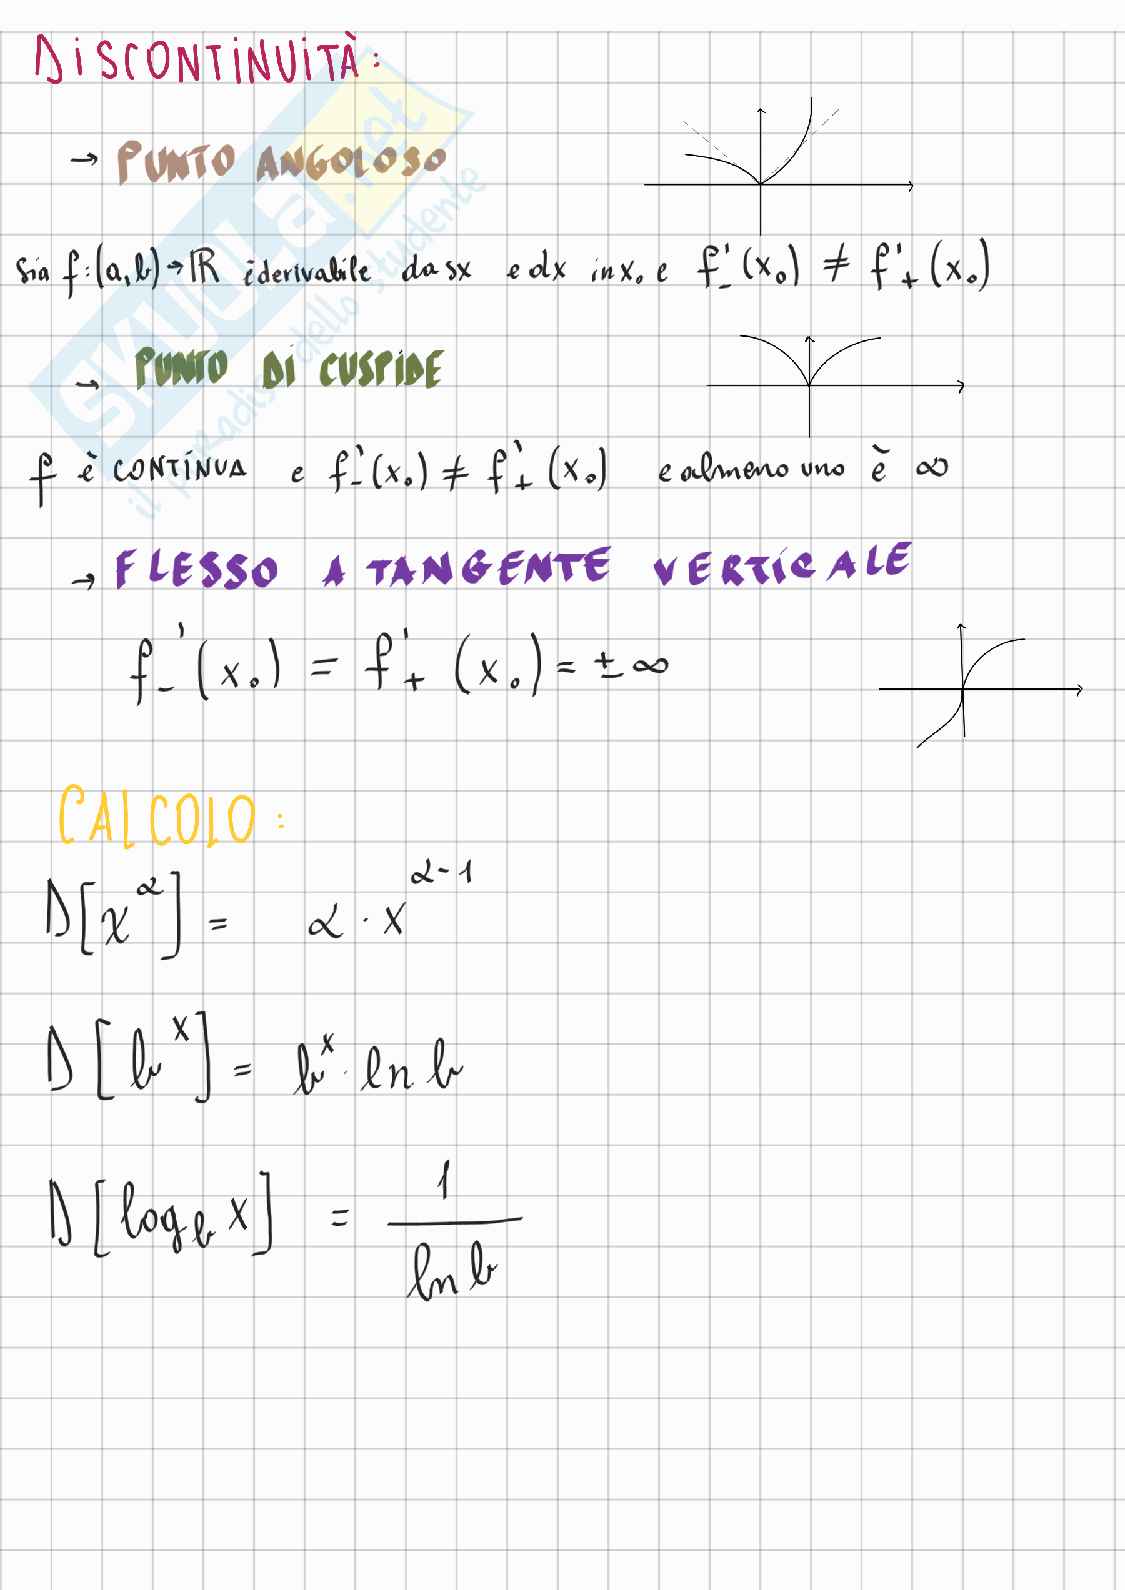 DISCONTINUITÀ:
→ PUNTO ANGOLOSO
Sia f:(a,b)→ℝ è derivabile da sx e dx in x₀ e f'₋(x₀) ≠ f'₊(x₀)
→ PUNTO DI CUSPIDE
f è CONTINUA e f'₋(x₀) ≠ f'₊(x₀) e almeno uno è ∞
→ FLESSO A TANGENTE VERTICALE
f'₋(x₀) = f'₊(x₀) = ±∞
CALCOLO:
D[x^α] = α · x^(α-1)
D[b^x] = b^x · ln b
D[log_b x] = 1/(ln b)
SKUOLA.net
il paradiso dello studente